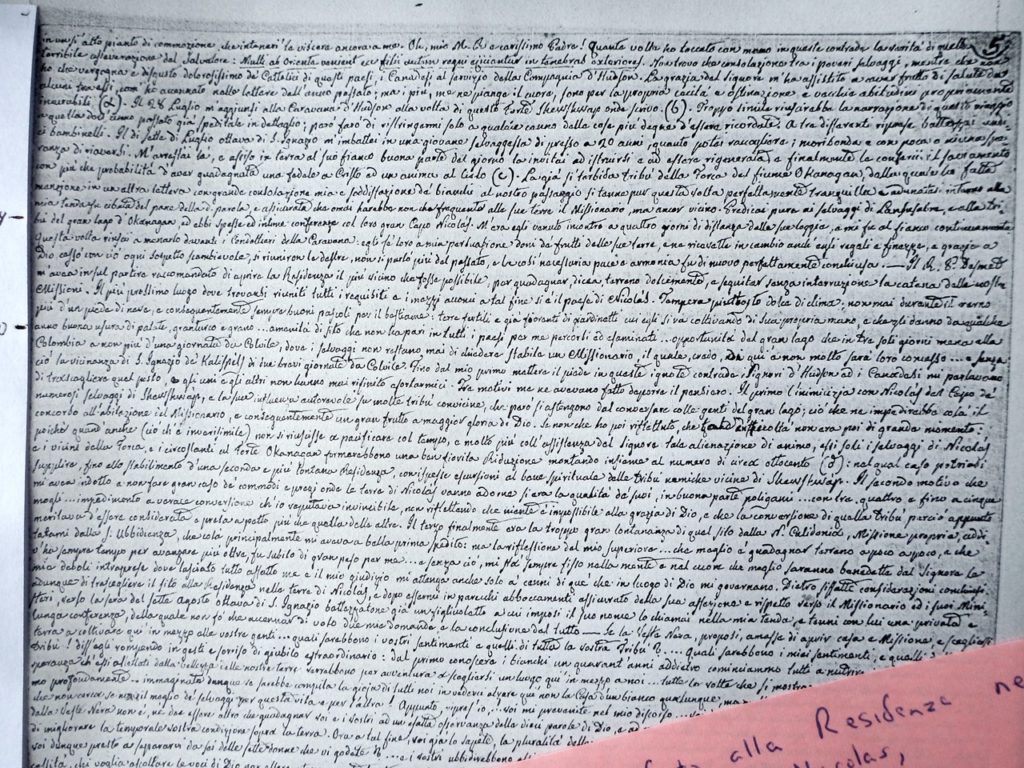 in un sì alto pianto di commozione, che intenerì le viscere ancora a me. Oh, mio M. R. e carissimo Padre! Quante volte ho toccato con mano in queste contrade la verità di quella 5.
terribile asseverazione del Salvatore: Multi ab Oriente venient et filii autem regni ejicientur in tenebras exteriores. Non trovo che consolazione tra i poveri selvaggi, mentre che non
ho che vergogna e disgusto dolorosissimo de' Cattolici di questi paesi, i Canadesi al servizio della Compagnia d'Hudson. La grazia del Signore m'ha assistito a aver frutto di salute da
alcuni tra essi, com'ho accennato nelle lettere dell'anno passato; ma i più, me ne piange il cuore, sono per la propria cecità e ostinazione e vecchie abitudini propriamente
incurabili (a). Il 28 Luglio m'aggiunsi alla Caravana d'Hudson alla volta di questo Forte Shewshwap onde scrivo (b). Troppo simile riuscirebbe la narrazione di questo viaggio
a quella dell'anno passato già speditale in dettaglio; però farò di ristringermi solo a qualche cenno delle cose più degne d'essere ricordate. A tre differenti riprese battezzai
ei bambinelli. Il dì sette di Luglio ottava di S. Ignazio m'imbattei in una giovane selvaggessa di presso a 20 anni, quanto potei raccogliere; moribonda e con poca o niuna spe-
ranza di riaversi. M'arrestai là, e assiso in terra al suo fianco buona parte del giorno la invitai ad istruirsi e ad essere rigenerata e finalmente le conferii il sacramento
con più che probabilità d'aver guadagnata una fedele a Cristo ed un'anima al Cielo (c). La già sì torbida Tribù della Forca del fiume Okanagan, della quale le fatta
menzione in un'altra lettera, con grande consolazione mia e soddisfazione de' bianchi al nostro passaggio si tenne per questa volta perfettamente tranquilla e adunatasi intorno alla
mia tenda fu cibata del pane della d. parola, e assicurata che ormai avrebbe non che frequente alle sue terre il Missionario, ma ancor vicino. Predicai pure ai selvaggi di e alla tri-
bù del gran lago d'Okanagan, ed ebbi spesse ed intime conferenze col loro gran Capo Nicolas. M'era egli venuto incontro a quattro giorni di distanza dalla sua loggia, e mi fu al fianco continuamente
Questa volta riuscii a menarlo davanti i Condottieri della Caravana: egli fe' loro a mia persuazione doni de' frutti delle sue terre, e ne ricevette in cambio anch'egli regali e finezze, e grazie a
Dio cessò con ciò ogni sospetto scambievole, si riunirono le destre, non si parlò più del passato, e la così necessaria pace e armonia fu di nuovo perfettamente conchiusa. — Il R. P. Desmet
m'aveva in sul partire raccomandato di aprire la Residenza il più vicino che fosse possibile, per guadagnar, dicea, terreno dolcemente, e seguitar senza interruzione la catena delle nostre
Missioni. Il più prossimo luogo dove trovansi riuniti tutti i requisiti e i mezzi acconci a tal fine si è il paese di Nicolas. Tempera piuttosto dolce di clima, non mai durante il verno
più d'un piede di neve, e conseguentemente sempre buoni pascoli per il bestiame: terre fertili e già fioranti di giardinetti cui essi si va coltivando di sua propria mano, e che gli danno da qualche
anno buona usura di patate, granturco e grano ... amenità di sito che non ha pari in tutti i paesi per me percorsi ed esaminati ... opportunità del gran lago che in tre soli giorni mena alla
Colombia a non più d'una giornata da Colvile, dove i selvaggi non restano mai di chiedere stabile un Missionario, il quale, credo, da qui a non molto sarà loro concesso ... e senza
ciò la vicinanza di S. Ignazio de' Kalispels di due brevi giornate da Colvile. Fino dal mio primo mettere il piede in queste ignote contrade i Signori d'Hudson ed i Canadesi mi parlavano
di trascegliere quel posto, e gli uni e gli altri non hanno mai rifinito esortarmici. Tre motivi me ne avevano fatto deporre il pensiero. Il primo l'inimicizia con Nicolas del Capo de'
numerosi selvaggi di Shewshwap, e la sua influenza autorevole su molte tribù convicine, che però si astengono dal conversare colle genti del gran lago; ciò che ne impedirebbe colà il
concorso all'abitazione del Missionario, e conseguentemente un gran frutto a maggior gloria di Dio. Se non che ho poi riflettuto, che difficoltà non era poi di grande momento:
poiché quand'anche (ciò ch'è inverisimile) non si riuscisse a pacificare col tempo, e molto più coll'assistenza del Signore tale alienazione di animo, essi soli i selvaggi di Nicolas
e i vicini della Forca, e i circostanti al Forte Okanagan formerebbono una ben fiorita Riduzione montando insieme al numero di circa ottocento (d): nel qual caso potriasi
supplire, fino allo stabilimento d'una seconda e più lontana Residenza, con ispesse escursioni al bene spirituale delle Tribù nemiche vicine di Shewshwap. Il secondo motivo che
mi avea indotto a non fare gran caso de' commodi e pregi onde le terre di Nicolas vanno adorne si era la qualità de' suoi, in buona parte poligami ... con tre, quattro e fino a cinque
mogli ... impedimento a verace conversione ch'io reputava invincibile, non riflettendo che niente è impossibile alla grazia di Dio, e che la conversione di quella Tribù perciò appunto
meritava d'essere considerata e presa a petto più che quella delle altre. Il terzo finalmente era la troppo gran lontananza di quel sito dalla N. Calidonia, Missione propria, addi-
tatami dalla S. Ubbidienza, che colà principalmente mi aveva a bella prima spedito: ma la riflessione del mio Superiore ... che meglio è guadagnar terreno a poco a poco, e che
v'ha sempre tempo per avanzare più oltre, fu subito di gran peso per me ... e senza ciò, mi sta sempre fisso nella mente e nel cuore che meglio saranno benedette dal Signore le
mie deboli intraprese dove lasciato tutto affatto me e il mio giudizio mi attenga anche solo a' cenni di que' che in luogo di Dio mi governano. Dietro siffatte considerazioni conchiusi
dunque di trascegliere il sito alla Residenza nelle terre di Nicolas, e dopo essermi in parecchi abboccamenti assicurato della sua affezione e rispetto verso il Missionario ed i suoi Mini-
steri, verso la sera del sette Agosto ottava di S. Ignazio battezzatone già un figliuoletto a cui imposi il suo nome lo chiamai nella mia tenda, e tenni con lui una privata e
lunga conferenza, della quale non fo che accennar di volo due mie domande e la conclusione del tutto — Se la Veste Nera, proposi, amasse di aprir casa e Missione, e scegliesse
terra a coltivare qui in mezzo alle vostre genti ... quali sarebbono i vostri sentimenti e quelli di tutta la vostra Tribù? ... Quali sarebbono i miei sentimenti, e quelli
Tribù! diss'egli rompendo in gesti e sorriso di giubilo estraordinario: dal primo conoscere i bianchi un quarant'anni addietro cominciammo tutti a nutrir
speranza ch'essi allettati dalla bellezza delle nostre terre verrebbono per avventura a scegliersi un luogo qui in mezzo a noi ... tutte le volte che si mostra
mo profondamente ... immaginate dunque se sarebbe compiuta la gioja di tutti noi in vedervi alzare qui non la Casa d'un bianco qualunque, ma
che non cerca se non il meglio de' selvaggi per questa vita e per l'altra! Appunto, ripres'io, voi mi prevenite nel mio discorso
dalla Veste Nera non è, né dee essere altro che guadagnar voi e i vostri ad un'esatta osservanza delle dieci parole di Dio, e ad
di migliorare la temporale vostra condizione sopra la terra. Ora a tal fine, voi già lo sapete, la pluralità delle
voi dunque presto a separarvi da sei delle sette donne che vi godete? ... e i vostri ubbidirebbono
che voglia ascoltare le voci di Dio per
alla Residenza ne
Nicolas,